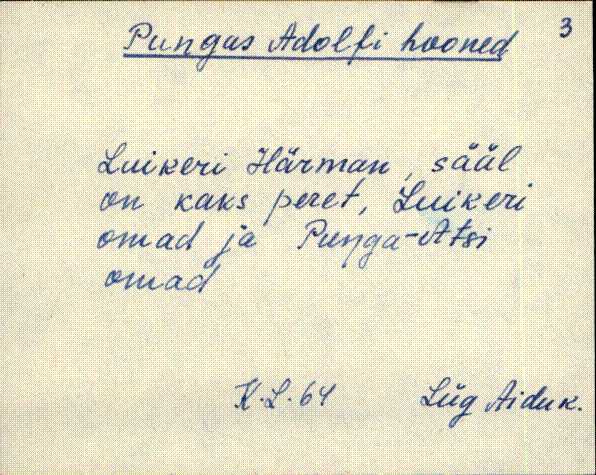 3
Pungas Adolfi hooned
Luikeri Härman, sääl
on kaks peret, Luikeri
omad ja Puŋga-Atsi
omad
K.L. 64 Lüg Aiduk.